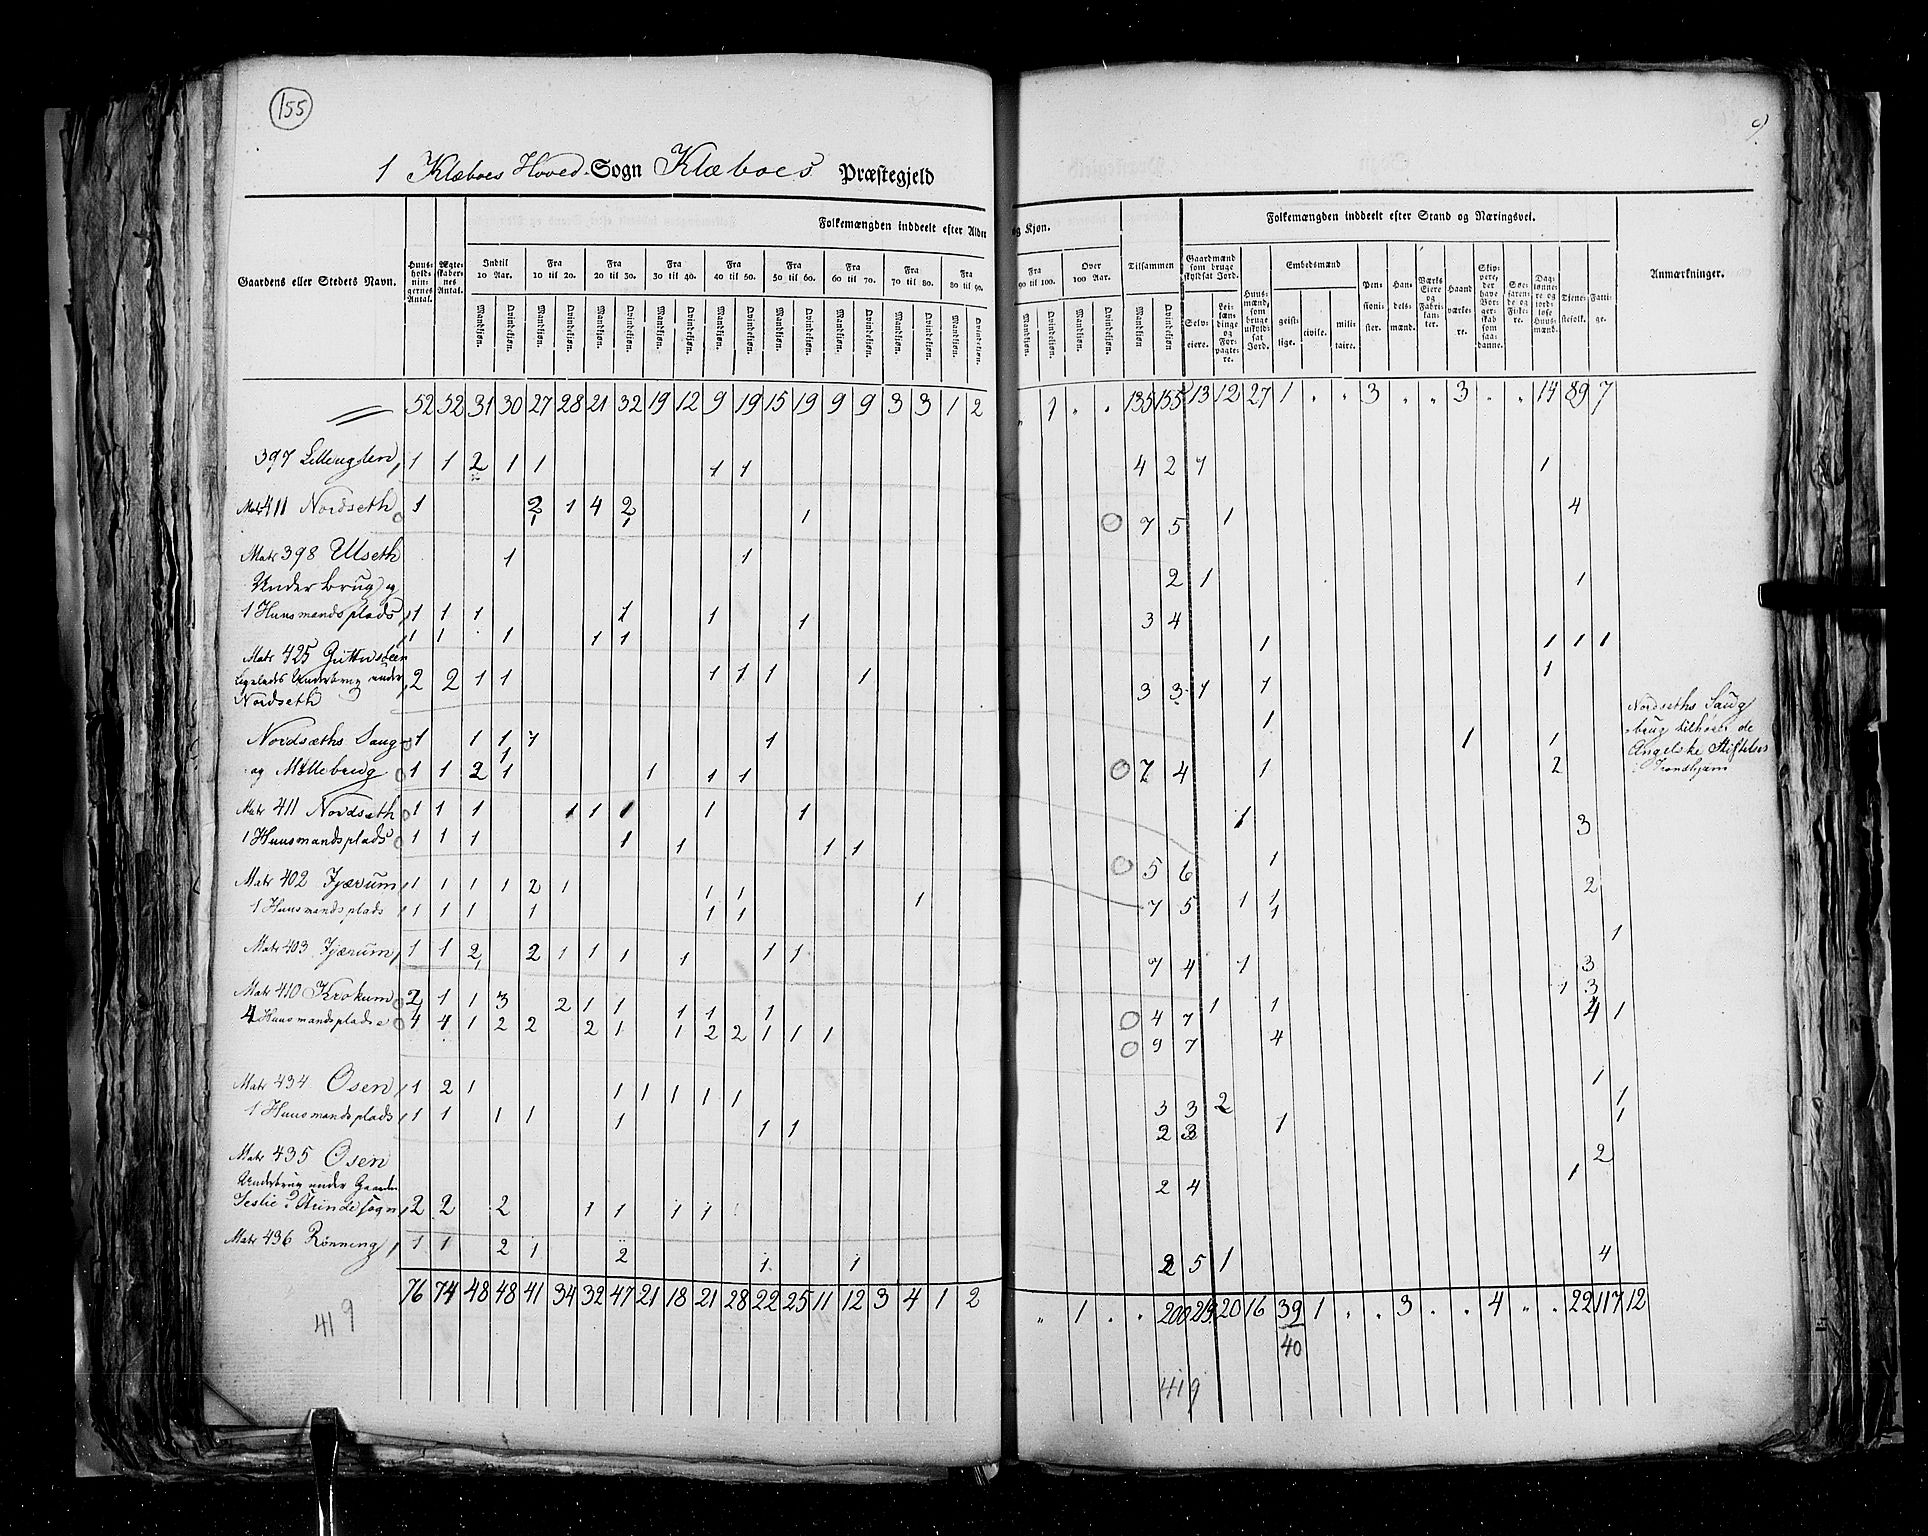 155
9
1 Klæboes Hoved-Sogn Klæboes Præstegjeld
Folkemængden inddeelt efter Alder og Kjøn.
Folkemængden inddeelt efter Stand og Næringsvei.
Gaardens eller Stedets Navn.
Huusholdningernes Antal.
Ægteskabernes Antal.
Indtil 10 Aar.
Fra 10 til 20.
Fra 20 til 30.
Fra 30 til 40.
Fra 40 til 50.
Fra 50 til 60.
Fra 60 til 70.
Fra 70 til 80.
Fra 80 til 90.
Fra 90 til 100.
Over 100 Aar.
Tilsammen
Gaardmænd som bruge skyldsat Jord.
Selveiere.
Leilændinge og Forpagtere.
Huusmænd, som bruge uskyldsat Jord.
Embedsmænd
geistlige.
civile.
militaire.
Pensionister.
Handelsmænd.
Værks Eiere og Fabrikanter.
Haandværkere.
Skippere, der have Borgerskab som saadanne.
Søefarende og Fiskere.
Dagslønnere og jordløse Huusmænd.
Tjenestefolk.
Fattige.
Anmærkninger.
Mandkjøn. Qvindekjøn. Mandkjøn. Qvindekjøn. Mandkjøn. Qvindekjøn. Mandkjøn. Qvindekjøn. Mandkjøn. Qvindekjøn. Mandkjøn. Qvindekjøn. Mandkjøn. Qvindekjøn. Mandkjøn. Qvindekjøn. Mandkjøn. Qvindekjøn. Mandkjøn. Qvindekjøn. Mandkjøn. Qvindekjøn. Mandkjøn Qvindekjøn
52 52 31 30 27 28 21 32 19 12 9 19 15 19 9 9 3 3 1 2 " 1 . . 135 155 13 12 27 1 . . 3 . " 3 . " 14 89 7
397 1 1 2 1 1 1 1 4 2 1 1
Matr 411 Nordseth 1 2 1 4 2 1 7 5 1 4
1 1
Matr 398 Ulseth 1 1
Underbrug og 2 1 1
1 Huusmandsplads 1 1 1 1 1 1 3 4
1 1 1 1 1 1 1 1 1
Matr 425
Underbrug under 2 2 1 1 1 1 1 1 3 3 1 1 1
Nordseth
Nordsæths Saug 1 1 1 1 1 1 1 1
og Møllebrug 1 1 2 1 1 1 1 7 4 1 2
Nordseths Saug
brug tilhører de
Angelske Stiftelser
Matr 411 Nordseth 1 1 1 1 1 1 1 1 1 3
1 Huusmandsplads 1 1 1 1 1 1 1 5 6 1
Matr 402 Tjærum 1 1 1 1 2 1 1 1 1 7 5 1 1 2
1 Huusmandsplads 1 1 1 1 1 1 1 1
Matr 403 Tjærum 1 1 2 2 1 1 1 1 1 1 7 4 1 3
Matr 410 Krokum 2 1 1 3 2 1 1 1 1 1 4 7 1 1
4 Huusmandspladse 4 4 1 2 2 2 1 1 2 2 1 1 1 9 7 4
Matr 434 Osen 1 2 1 1 1 1 1 1 3 3 2 1
1 Huusmandsplads 1 1 1 1 1 1 1 2 3 1 1
Matr 435 Osen
Underbrug under Gaarden 2 4 1 2
Leslie i Strinde Sogn 2 2 2 1 1 1 1
Matr 436 Rönning 1 1 2 1 2 1 1 2 5 1 4
76 74 48 48 41 34 32 47 21 18 21 28 22 25 11 12 3 4 1 2 " 1 . . 200 219 20 16 39 1 . . 3 . . 4 " . 22 117 12
40
419
419